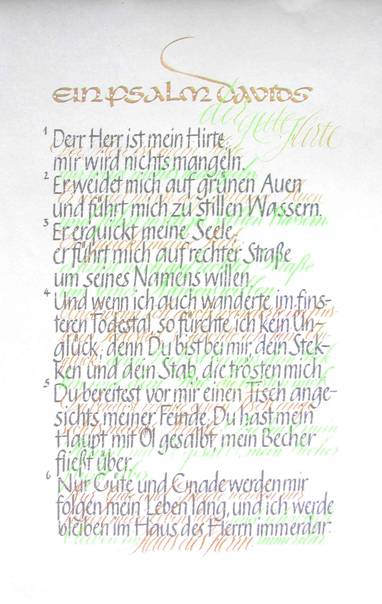 EIN PSALM DAVIDS
der gute Hirte
1 Derr Herr ist mein Hirte
mir wird nichts mangeln.
2 Er weidet mich auf grünen Auen
und führt mich zu stillen Wassern.
3 Er erquickt meine Seele
er führt mich auf rechter Straße
um seines Namens willen
4 Und wenn ich auch wanderte im fins-
teren Todestal, so fürchte ich kein Un-
glück; denn Du bist bei mir, dein Stek-
ken und dein Stab, die trösten mich
5 Du bereitest vor mir einen Tisch ange-
sichts meiner Feinde. Du hast mein
Haupt mit Öl gesalbt, mein Becher
fließt über.
6 Nur Güte und Gnade werden mir
folgen mein Leben lang, und ich werde
bleiben im Haus des Herrn immerdar
Haus des Herrn immerdar